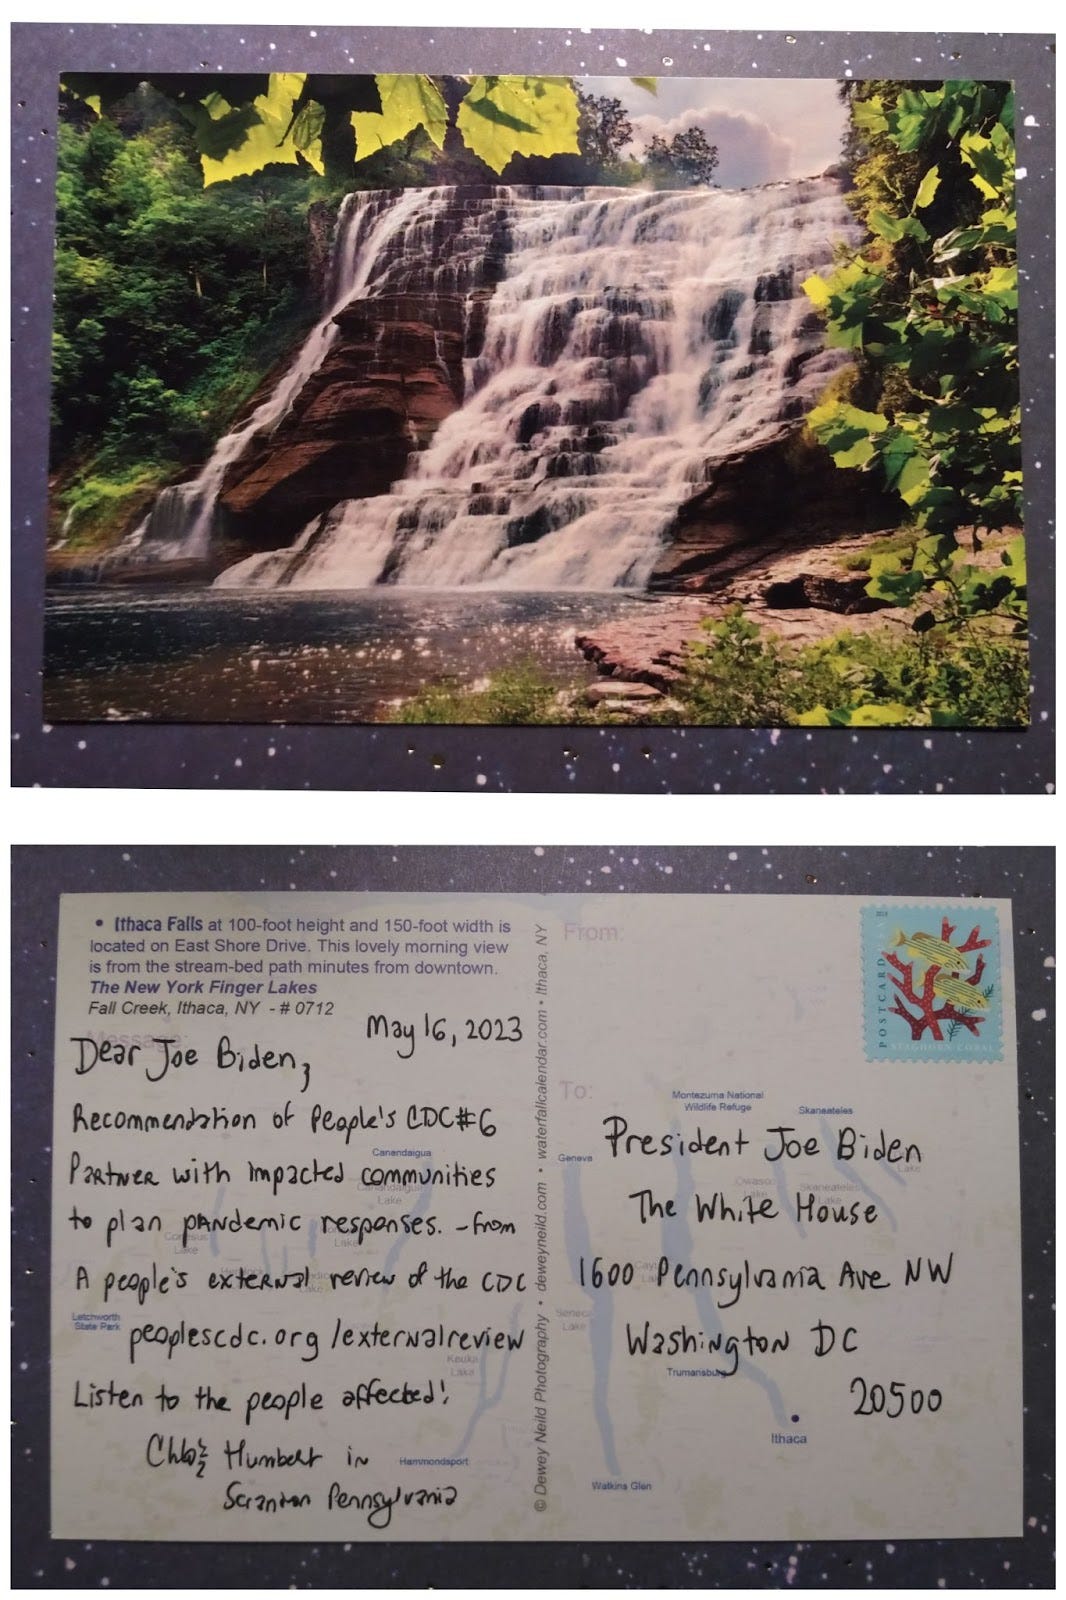 • Ithaca Falls at 100-foot height and 150-foot width is
located on East Shore Drive. This lovely morning view
is from the stream-bed path minutes from downtown.
The New York Finger Lakes
Fall Creek, Ithaca, NY - # 0712
Message:
May 16, 2023
Dear Joe Biden,
Recommendation of People's CDC #6
Partner with impacted communities
to plan pandemic responses. - from
A people's external review of the CDC
peoplescdc.org/externalreview
Listen to the people affected!
Chloë Humbert in
Scranton Pennsylvania
© Dewey Neild Photography • deweyneild.com • waterfallcalendar.com • Ithaca, NY
From:
POSTCARD
STAGHORN CORAL
To:
President Joe Biden
The White House
1600 Pennsylvania Ave NW
Washington DC
20500
Montezuma National
Wildlife Refuge
Skaneateles
Geneva
Canandaigua
Canandaigua
Lake
Owasco
Lake
Skaneateles
Lake
Lake
Conesus
Lake
Hemlock
Lake
Letchworth
State Park
Seneca
Lake
Keuka
Lake
Trumansburg
Ithaca
Hammondsport
Watkins Glen